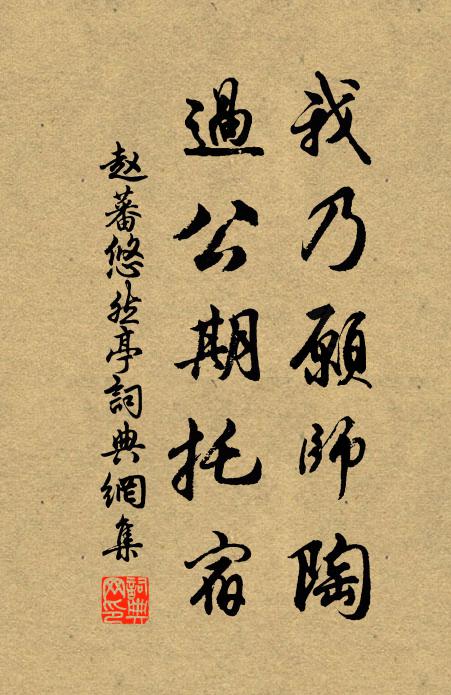 我乃願師陶
過公期托宿
赵蕃悠然亭詞典網集
詞典網印